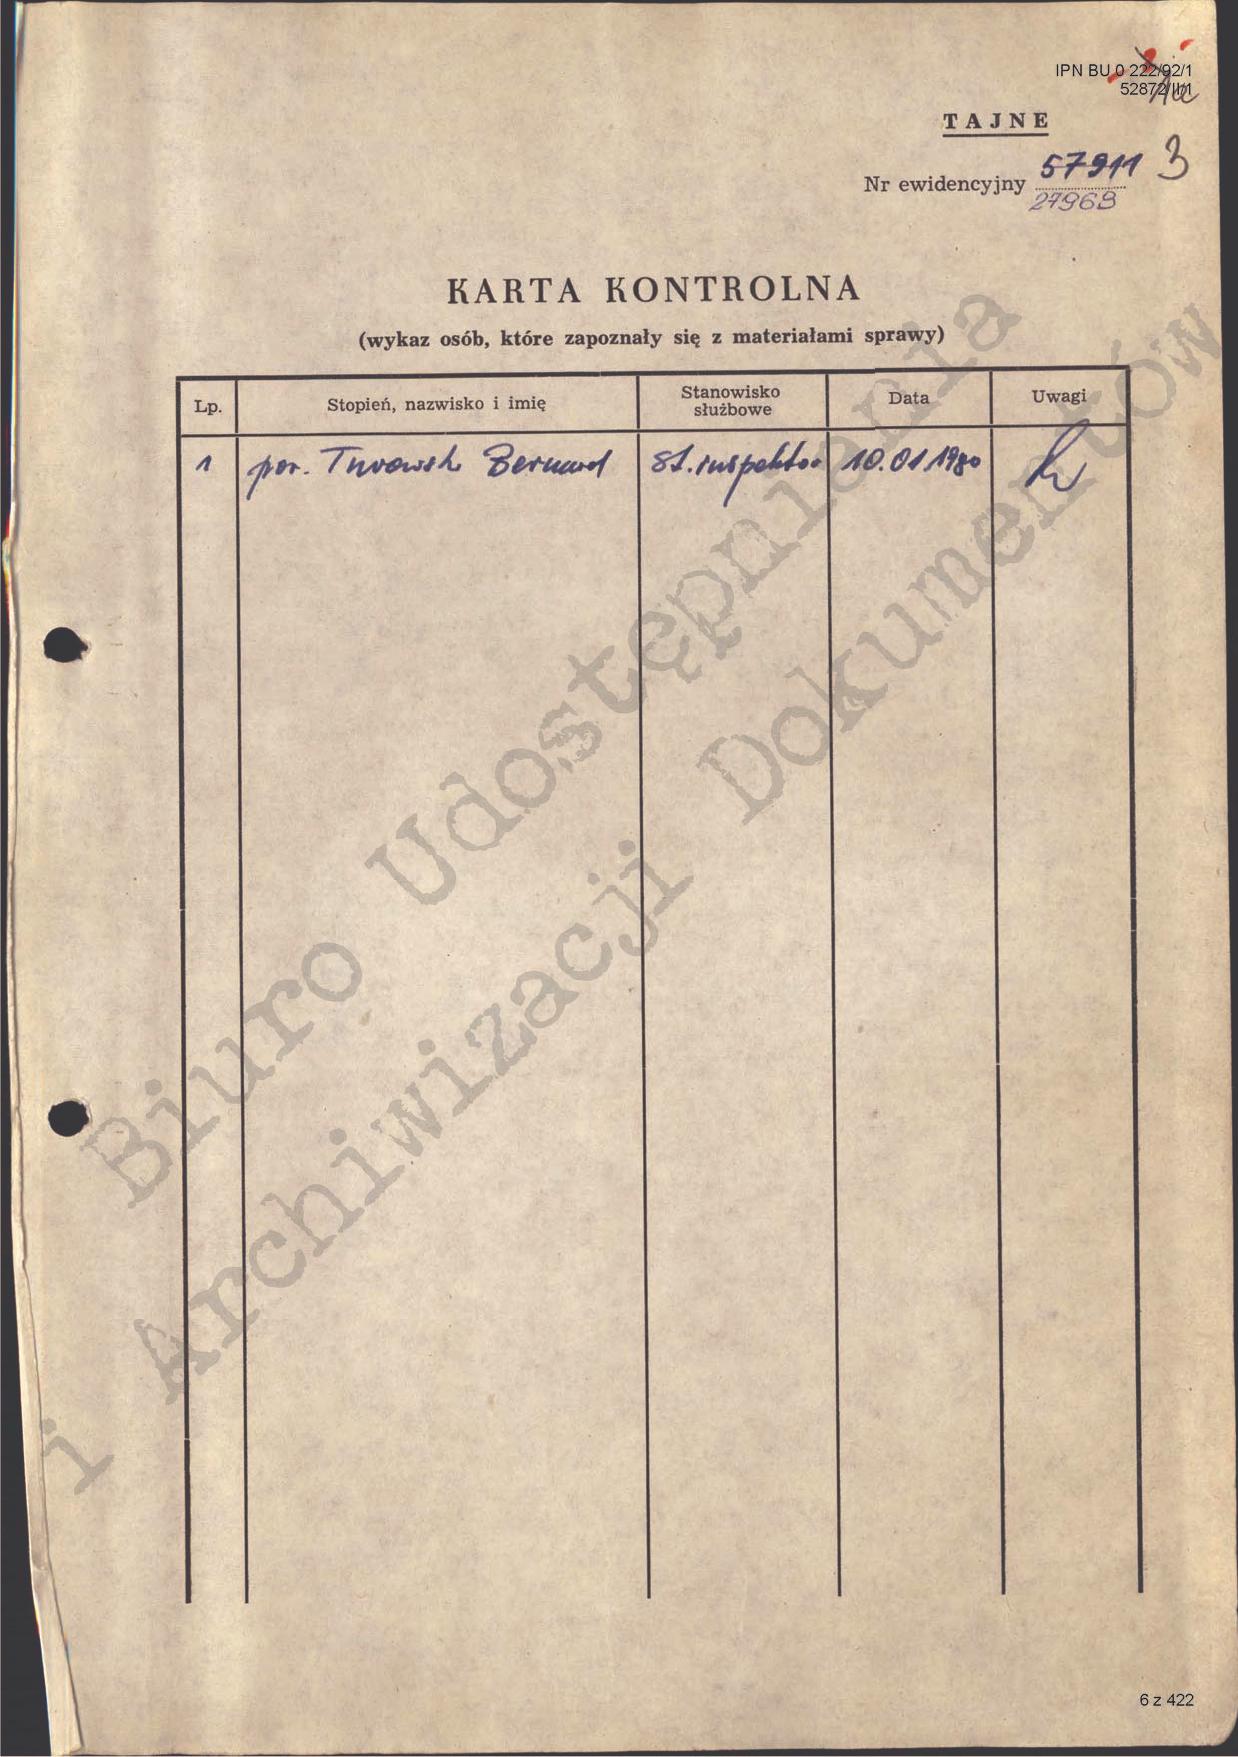 IPN BU 0 222/92/1
52872/II/1
TAJNE
57911 3
Nr ewidencyjny
27968
KARTA KONTROLNA
(wykaz osób, które zapoznały się z materiałami sprawy)
Lp. Stopień, nazwisko i imię Stanowisko służbowe Data Uwagi
1 por. Turowski Bernard St. inspektor 10.01 1980
Biuro Udostępniania
i Archiwizacji Dokumentów
6 z 422